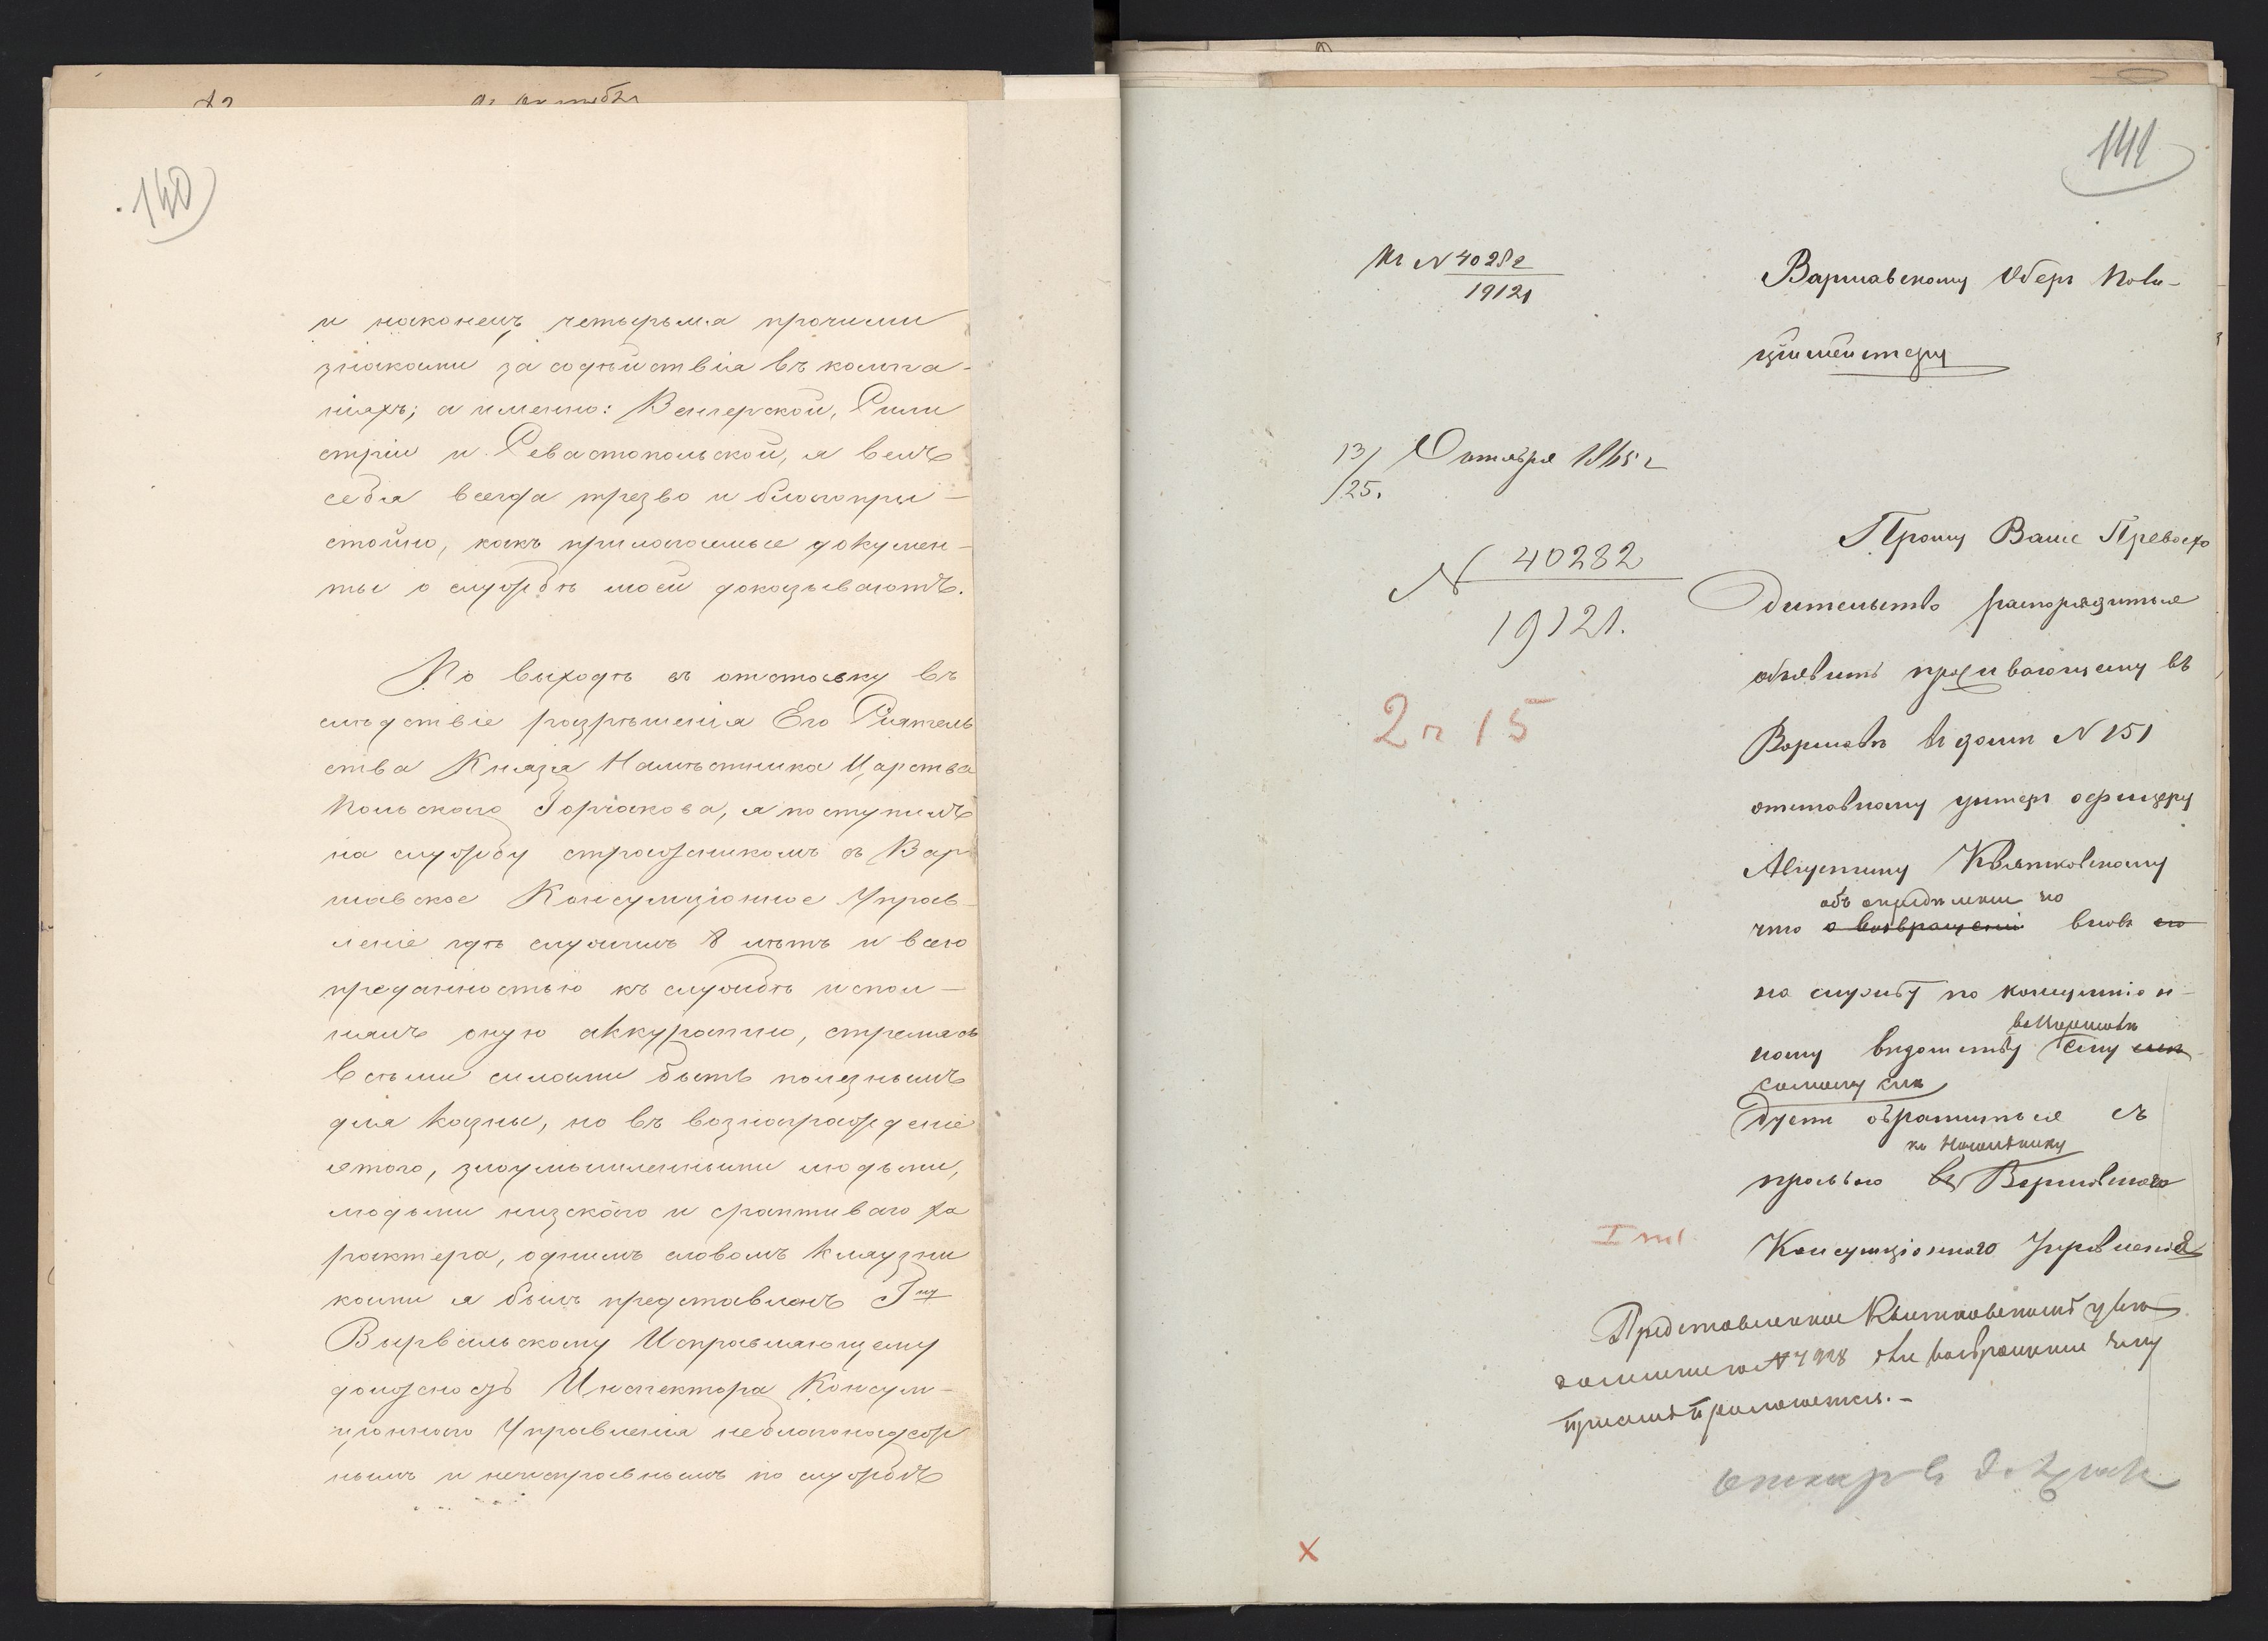 140
и наконецъ четырьмя прочими
знаками за содѣйствія въ компа-
ніяхъ; а именно: Венгерской, Сили
стріи и Севастопольской, я велъ
себя всегда трезво и благопри-
стойно, какъ прилагаемые докумен-
ты о службѣ моей доказываютъ.
По выходѣ въ отставку въ
слѣдствіе разрѣшенія Его Сіятель
ства Князя Намѣстника Царства
Польскаго Горчакова, я поступилъ
на службу стражникомъ въ Вар
шавское Консумціонное Управ-
леніе гдѣ служилъ 8 лѣтъ и всею
преданностью къ службѣ испол-
нялъ оную аккуратно, стремясь
всѣми силами быть полезнымъ
для казны, но въ вознагражденіе
этого, злоумышленными людьми,
людьми низскаго и сраптиваго ха
рактера, однимъ словомъ кляузни
ками я былъ представленъ Гну
Вырвильскому Исправляющему
должность Инспектора Консум-
ціоннаго Управленія неблагонадеж
нымъ и неисправнымъ по службѣ
141
Къ N 40282
19121
Варшавскому Оберъ Поли-
цiймейстеру
13/25. Октября 1865 г
N 40282
19121.
2 п 15
Прошу Ваше Превосхо
дительство распорядиться
объявить проживающему въ
Варшавѣ въ домѣ N 151
отставному унтеръ офицеру
Августину Квятковскому
объ опредѣленіи его
что о возвращеніи вновь его
на службу по консумціон-
въ Варшавѣ
ному вѣдомству ему слѣ
самому слѣ
дуетъ обратиться съ
къ Начальнику
просьбою въ Варшавскаго
Консумціоннаго Управленія
Представленное Квятковскимъ
N 7928 для возвращенія ему
при семъ прилагается.-
х